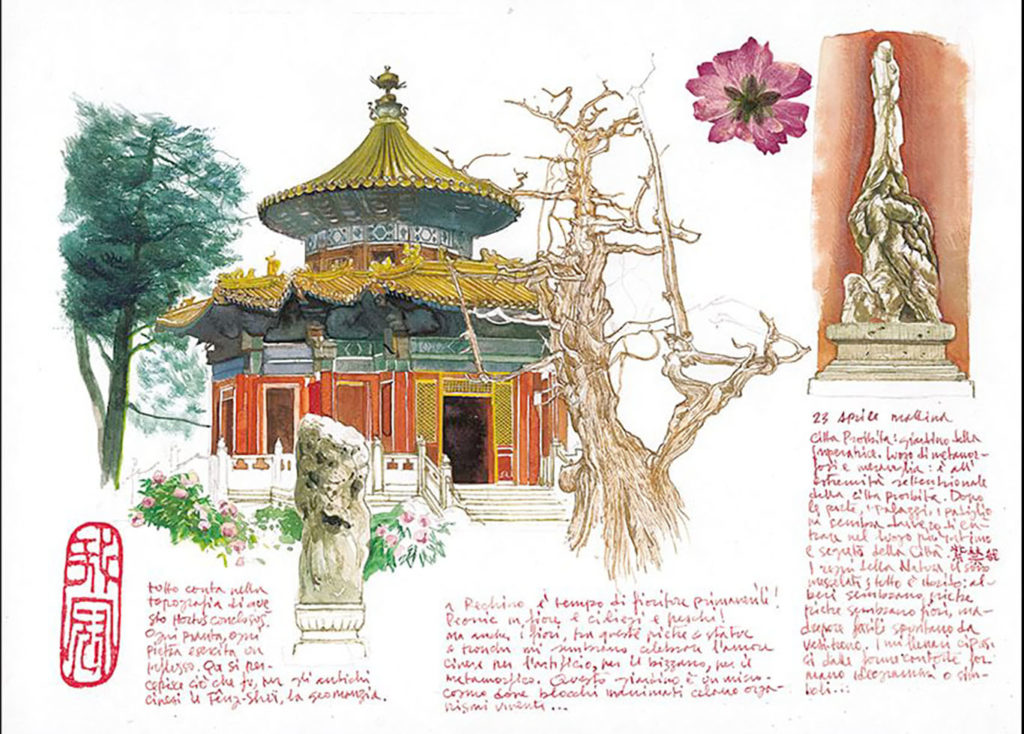 23 aprile mattina
Città Proibita: giardino della
Imperatrice. Luogo di metamor-
fosi e meraviglia: è all'
estremità settentrionale
della città proibita. Dopo
le porte, i palazzi, i padiglio
ni sembra davvero di en-
trare nel luogo più intimo
e segreto della Città. 紫禁城
I regni della Natura si sono
mescolati, tutto è ibrido: al-
beri sembrano pietre
pietre sembrano fiori, ma-
drepore fossili spuntano da
I minerali
si dalle forme contorte for-
mano ideogrammi o sim-
boli...
tutto conta nella
topografia di que
sto Hortus conclusus.
Ogni pianta, ogni
pietra esercita un
influsso. Qui si per-
cepisce ciò che fu, per gli antichi
cinesi il Feng-shui, la geomanzia.
a Pechino, è tempo di fioriture primaverili!
Peonie in fiore e ciliegi e peschi!
ma anche i fiori, tra queste pietre e statue
e tronchi mi sembrano celebrare l'amore
cinese per l'artificio, per il bizzarro, per il
metamorfico. Questo giardino è un micro-
cosmo dove blocchi inanimati celano orga-
nismi viventi...